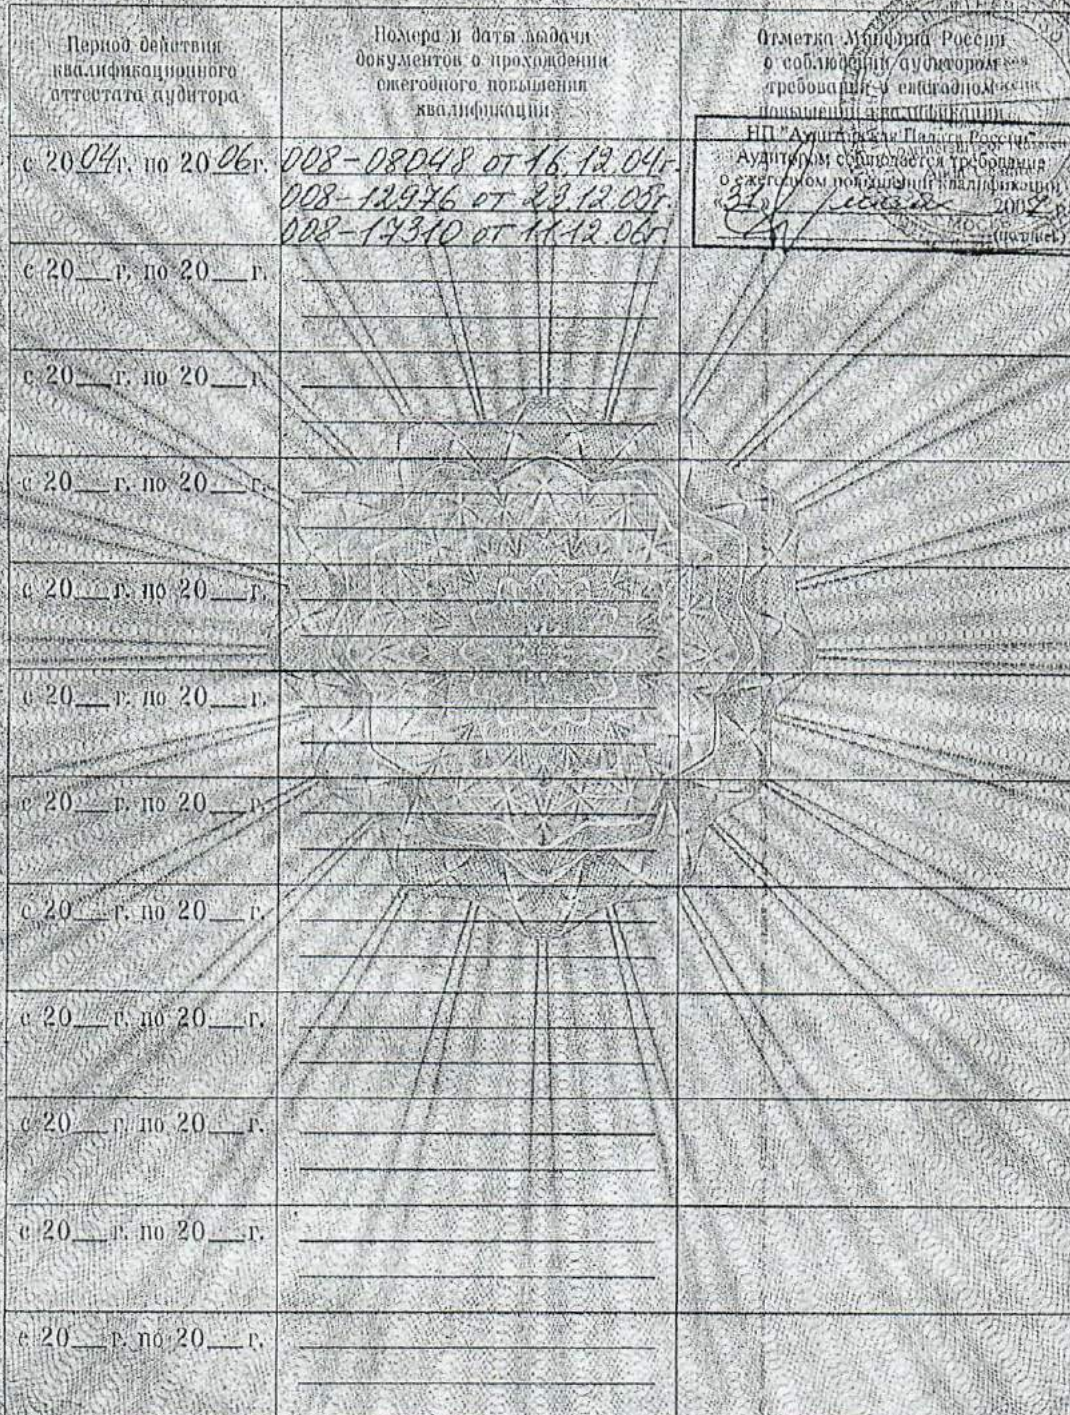 Период действия
квалификационного
аттестата аудитора
Номера и даты выдачи
документов о прохождении
ежегодного повышения
квалификации
Отметка Минфина России
о соблюдении аудитором
требования о ежегодном
повышении квалификации
с 2004г. по 2006г.
008-08048 от 16.12.04г.
008-12976 от 23.12.05г.
008-17310 от 11.12.06г.
НП "Аудиторская Палата России"
Аудитором соблюдается требование
о ежегодном повышении квалификации
«31» 2007 г.
(подпись)
с 20__г. по 20__г.
с 20__г. по 20__г.
с 20__г. по 20__г.
с 20__г. по 20__г.
с 20__г. по 20__г.
с 20__г. по 20__г.
с 20__г. по 20__г.
с 20__г. по 20__г.
с 20__г. по 20__г.
с 20__г. по 20__г.
с 20__г. по 20__г.